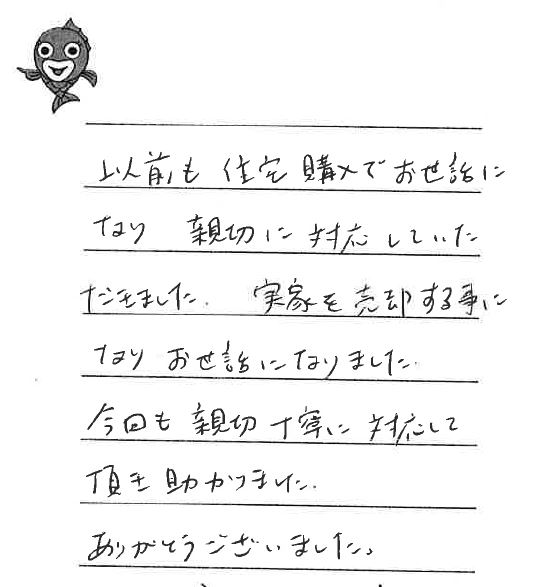 以前も 住宅購入でお世話に
なり 親切に対応していた
だきました. 実家を売却する事に
なり お世話になりました.
今回も親切丁寧に対応して
頂き助かりました.
ありがとうございました。